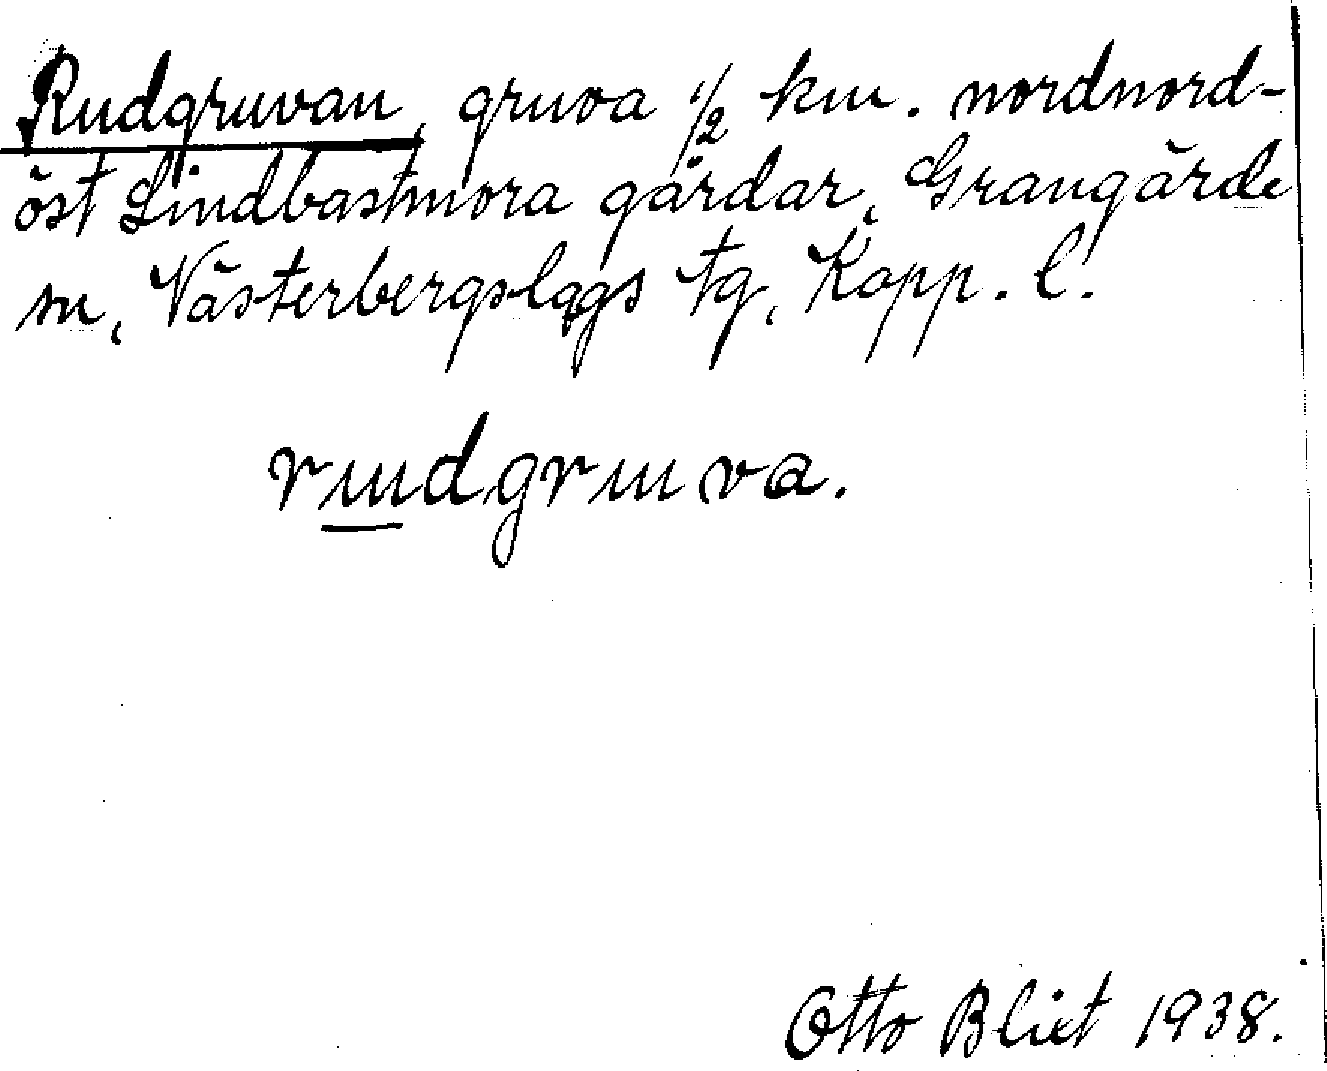 Rudgruvan, gruva 1/2 km. nordnord-
öst Lindbastmora gårdar, Grangärde
sn, Västerbergslags tg, Kopp. l.
rudgruva.
Otto Blixt 1938.